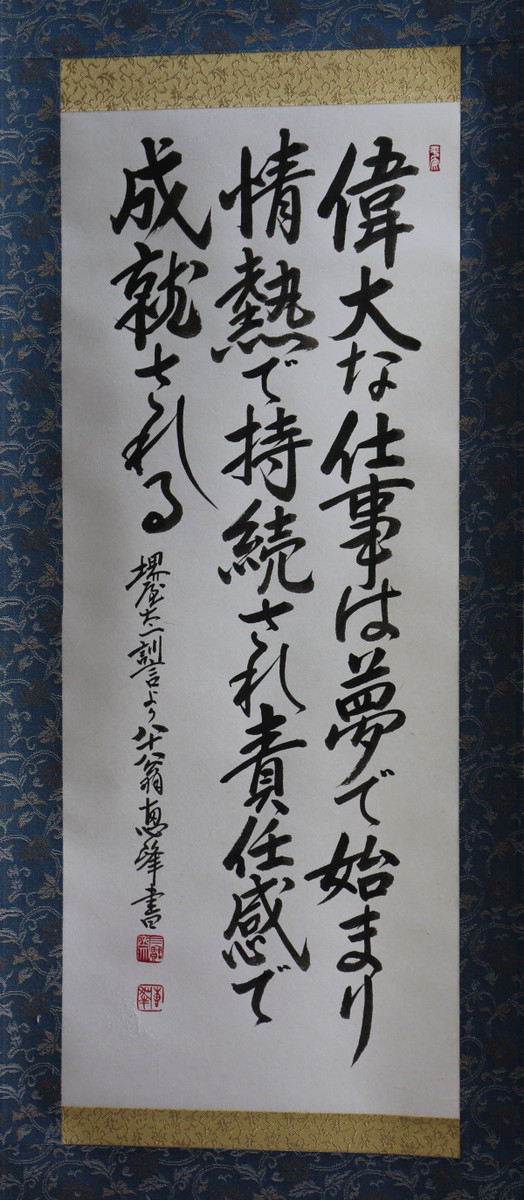 偉大な仕事は夢で始まり
情熱で持続され責任感で
成就される
堺屋太一訓言より 八十八翁 恵峰書